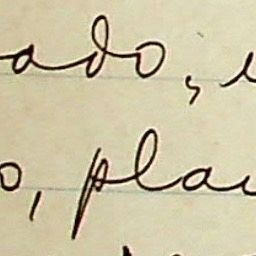 ado,
o, pla